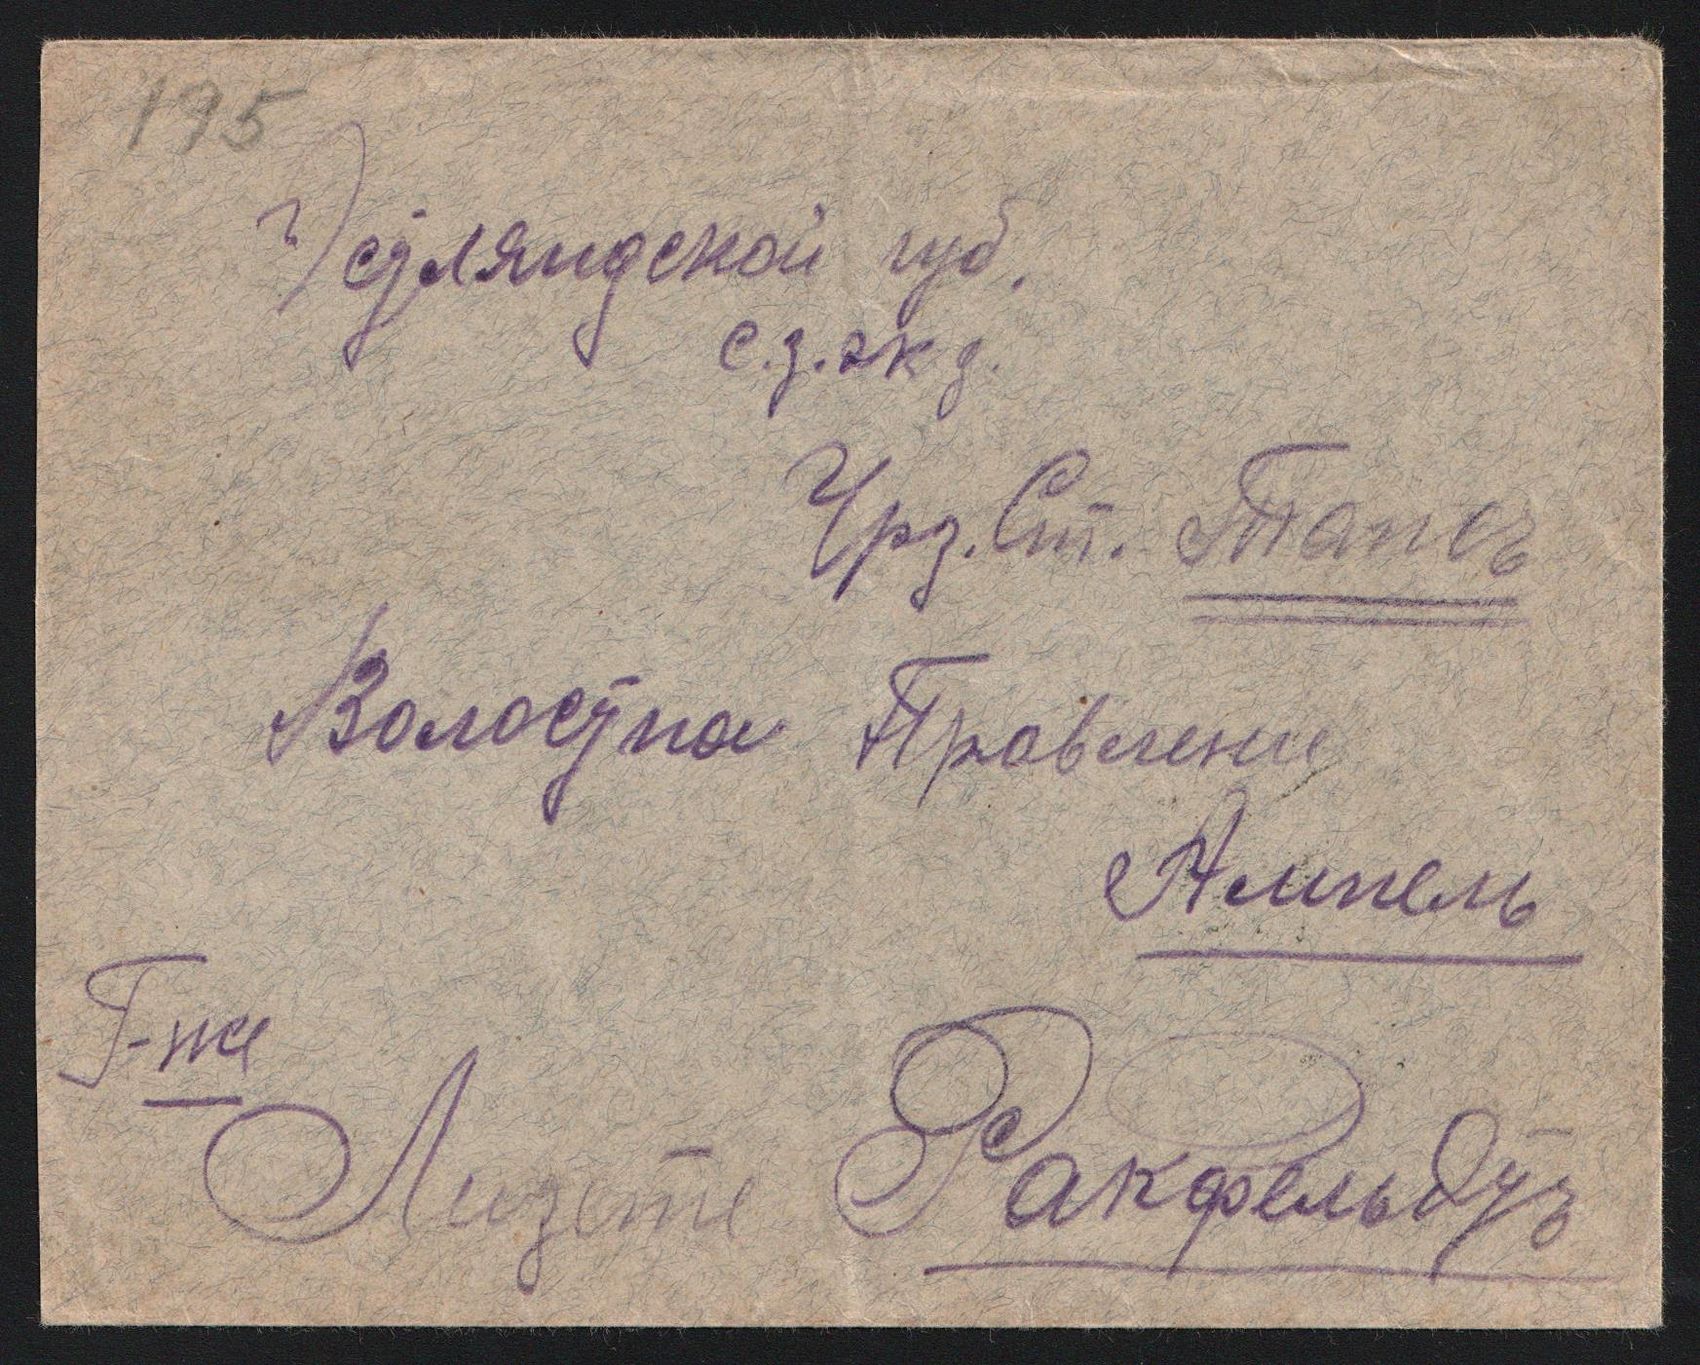 195
Эстляндской губ.
с.з.жд.
Чрз. Ст. Тапсъ
Волостна Правлени
Ампель
Г-же
Лизете Ракфельдтъ